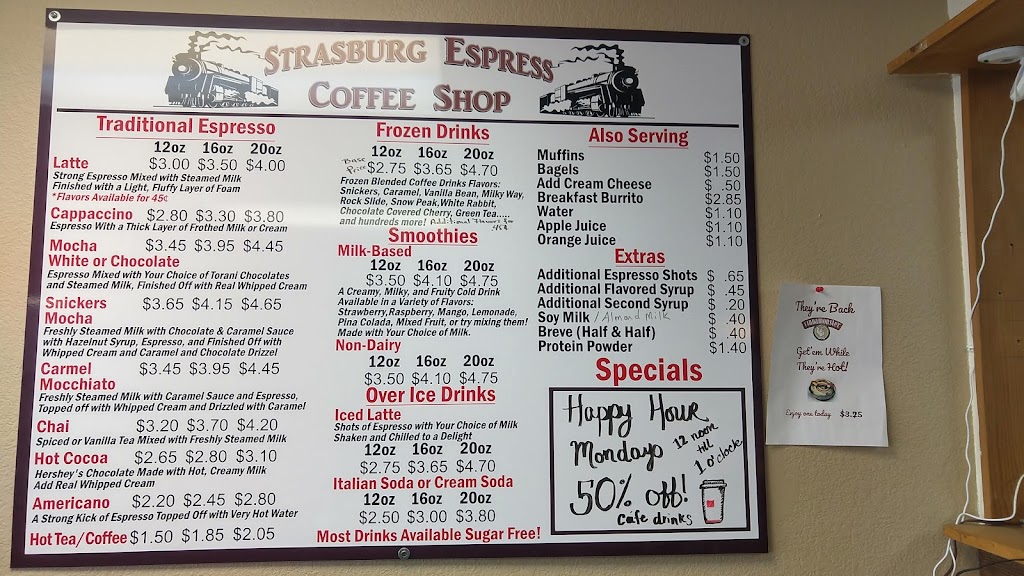 STRASBURG ESPRESS
COFFEE SHOP
Traditional Espresso
12oz 16oz 20oz
Latte $3.00 $3.50 $4.00
Strong Espresso Mixed with Steamed Milk
Finished with a Light, Fluffy Layer of Foam
*Flavors Available for 45¢
Cappaccino $2.80 $3.30 $3.80
Espresso With a Thick Layer of Frothed Milk or Cream
Mocha $3.45 $3.95 $4.45
White or Chocolate
Espresso Mixed with Your Choice of Torani Chocolates
and Steamed Milk, Finished Off with Real Whipped Cream
Snickers $3.65 $4.15 $4.65
Mocha
Freshly Steamed Milk with Chocolate & Caramel Sauce
with Hazelnut Syrup, Espresso, and Finished Off with
Whipped Cream and Caramel and Chocolate Drizzel
Carmel $3.45 $3.95 $4.45
Mocchiato
Freshly Steamed Milk with Caramel Sauce and Espresso,
Topped off with Whipped Cream and Drizzled with Caramel
Chai $3.20 $3.70 $4.20
Spiced or Vanilla Tea Mixed with Freshly Steamed Milk
Hot Cocoa $2.65 $2.80 $3.10
Hershey's Chocolate Made with Hot, Creamy Milk
Add Real Whipped Cream
Americano $2.20 $2.45 $2.80
A Strong Kick of Espresso Topped Off with Very Hot Water
Hot Tea/Coffee $1.50 $1.85 $2.05
Frozen Drinks
12oz 16oz 20oz
Base Price $2.75 $3.65 $4.70
Frozen Blended Coffee Drinks Flavors:
Snickers, Caramel, Vanilla Bean, Milky Way,
Rock Slide, Snow Peak,White Rabbit,
Chocolate Covered Cherry, Green Tea.....
and hundreds more! Additional Flavors for
.45¢
Smoothies
Milk-Based
12oz 16oz 20oz
$3.50 $4.10 $4.75
A Creamy, Milky, and Fruity Cold Drink
Available in a Variety of Flavors:
Strawberry,Raspberry, Mango, Lemonade,
Pina Colada, Mixed Fruit, or try mixing them!
Made with Your Choice of Milk.
Non-Dairy
12oz 16oz 20oz
$3.50 $4.10 $4.75
Over Ice Drinks
Iced Latte
Shots of Espresso with Your Choice of Milk
Shaken and Chilled to a Delight
12oz 16oz 20oz
$2.75 $3.65 $4.70
Italian Soda or Cream Soda
12oz 16oz 20oz
$2.50 $3.00 $3.80
Most Drinks Available Sugar Free!
Also Serving
Muffins $1.50
Bagels $1.50
Add Cream Cheese $ .50
Breakfast Burrito $2.85
Water $1.10
Apple Juice $1.10
Orange Juice $1.10
Extras
Additional Espresso Shots $ .65
Additional Flavored Syrup $ .45
Additional Second Syrup $ .20
Soy Milk / Almond Milk $ .40
Breve (Half & Half) $ .40
Protein Powder $1.40
Specials
Happy Hour
Mondays 12 noon
till
1 o'clock
50% off!
Cafe drinks
They're Back
Get'em While
They're Hot!
Enjoy one today $3.25